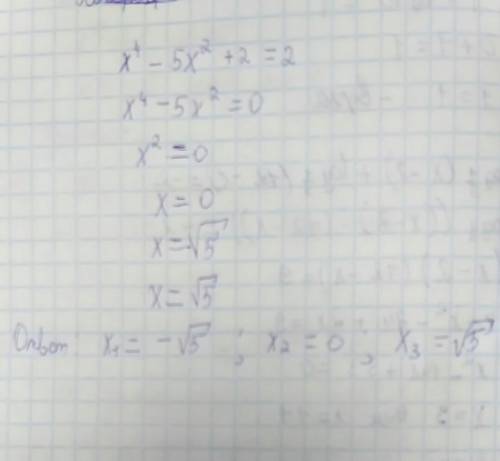 x⁴ - 5x² + 2 = 2
x⁴ - 5x² = 0
x² = 0
x = 0
x = √5
x = √5
Ответ: x₁ = -√5 ; x₂ = 0 ; x₃ = √5